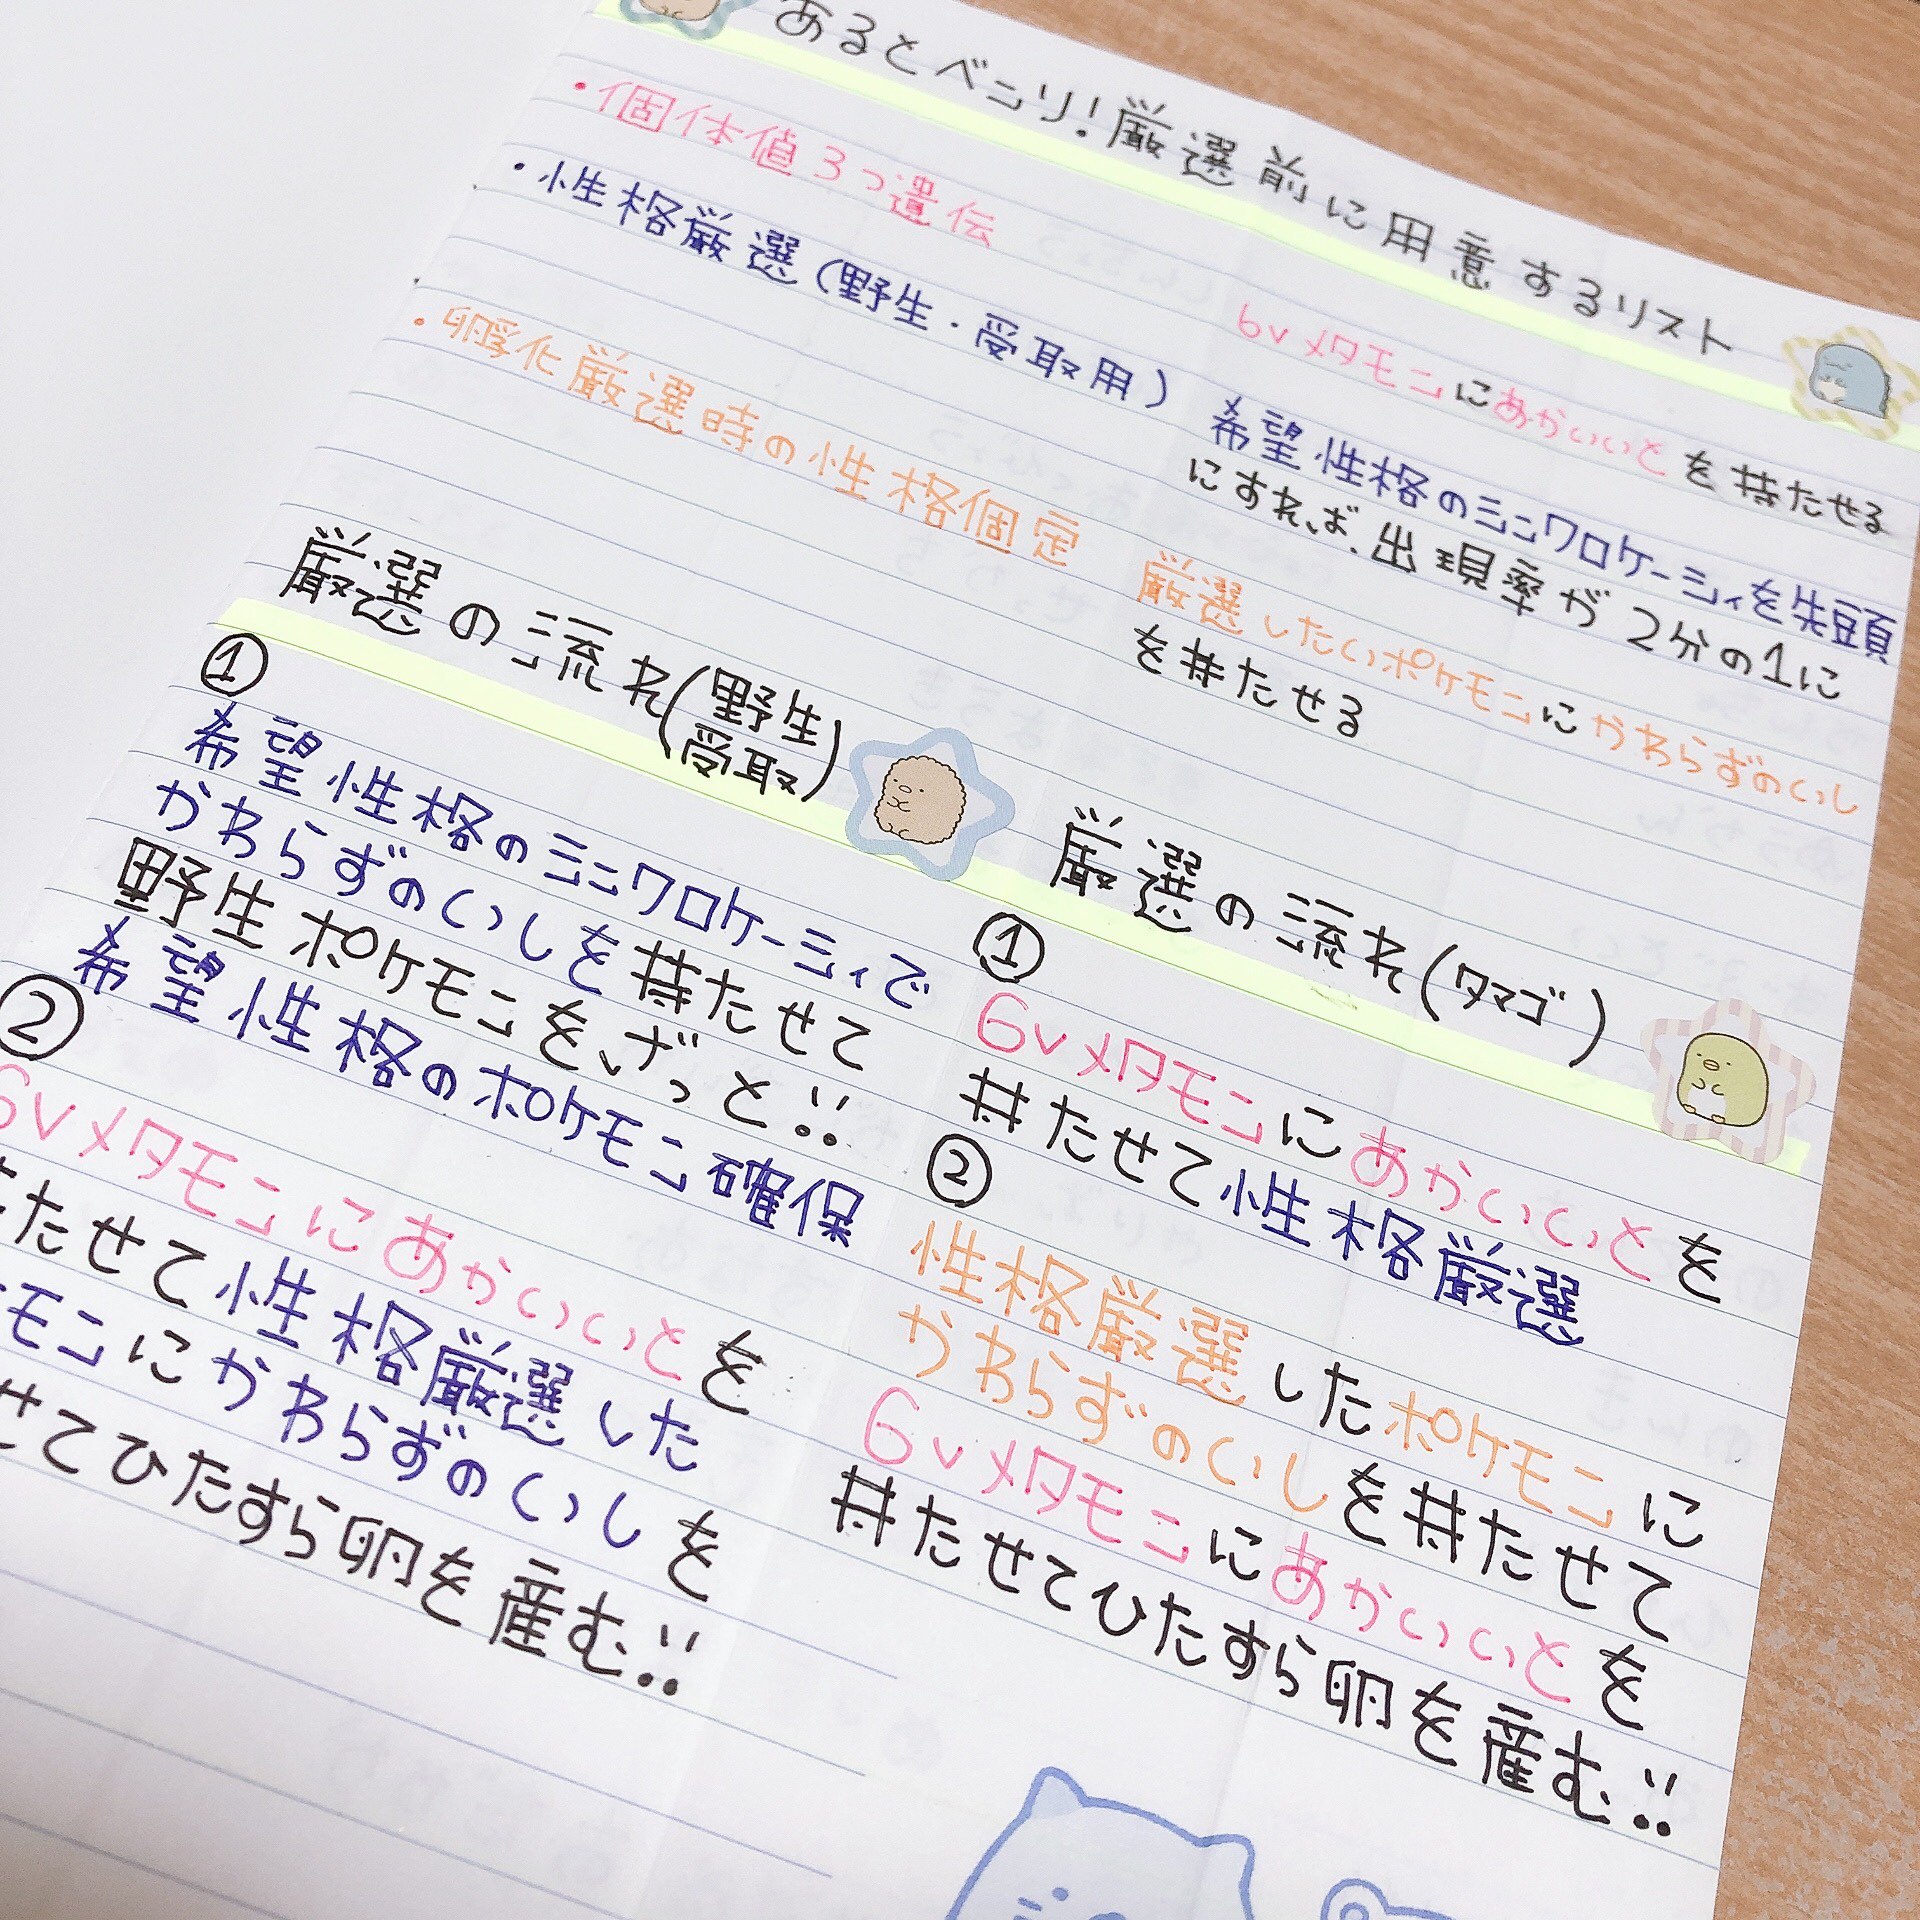 あるとベンリ!厳選前に用意するリスト
・個体値3つ遺伝
6vメタモンにあかいいとを持たせる
・性格厳選(野生・受取用)
希望性格のシンクロケーシィを先頭
にすれば、出現率が2分の1に
・孵化厳選時の性格個定
厳選したいポケモンにかわらずのいし
を持たせる
厳選の流れ(野生 受取)
①
希望性格のシンクロケーシィで
かわらずのいしを持たせて
野生ポケモンをげっと!!
希望性格のポケモン確保
②
6vメタモンにあかいいとを
たせて性格厳選した
モンにかわらずのいしを
せてひたすら卵を産む!!
厳選の流れ(タマゴ)
①
6vメタモンにあかいいとを
持たせて性格厳選
②
性格厳選したポケモンに
かわらずのいしを持たせて
6vメタモンにあかいいとを
持たせてひたすら卵を産む!!